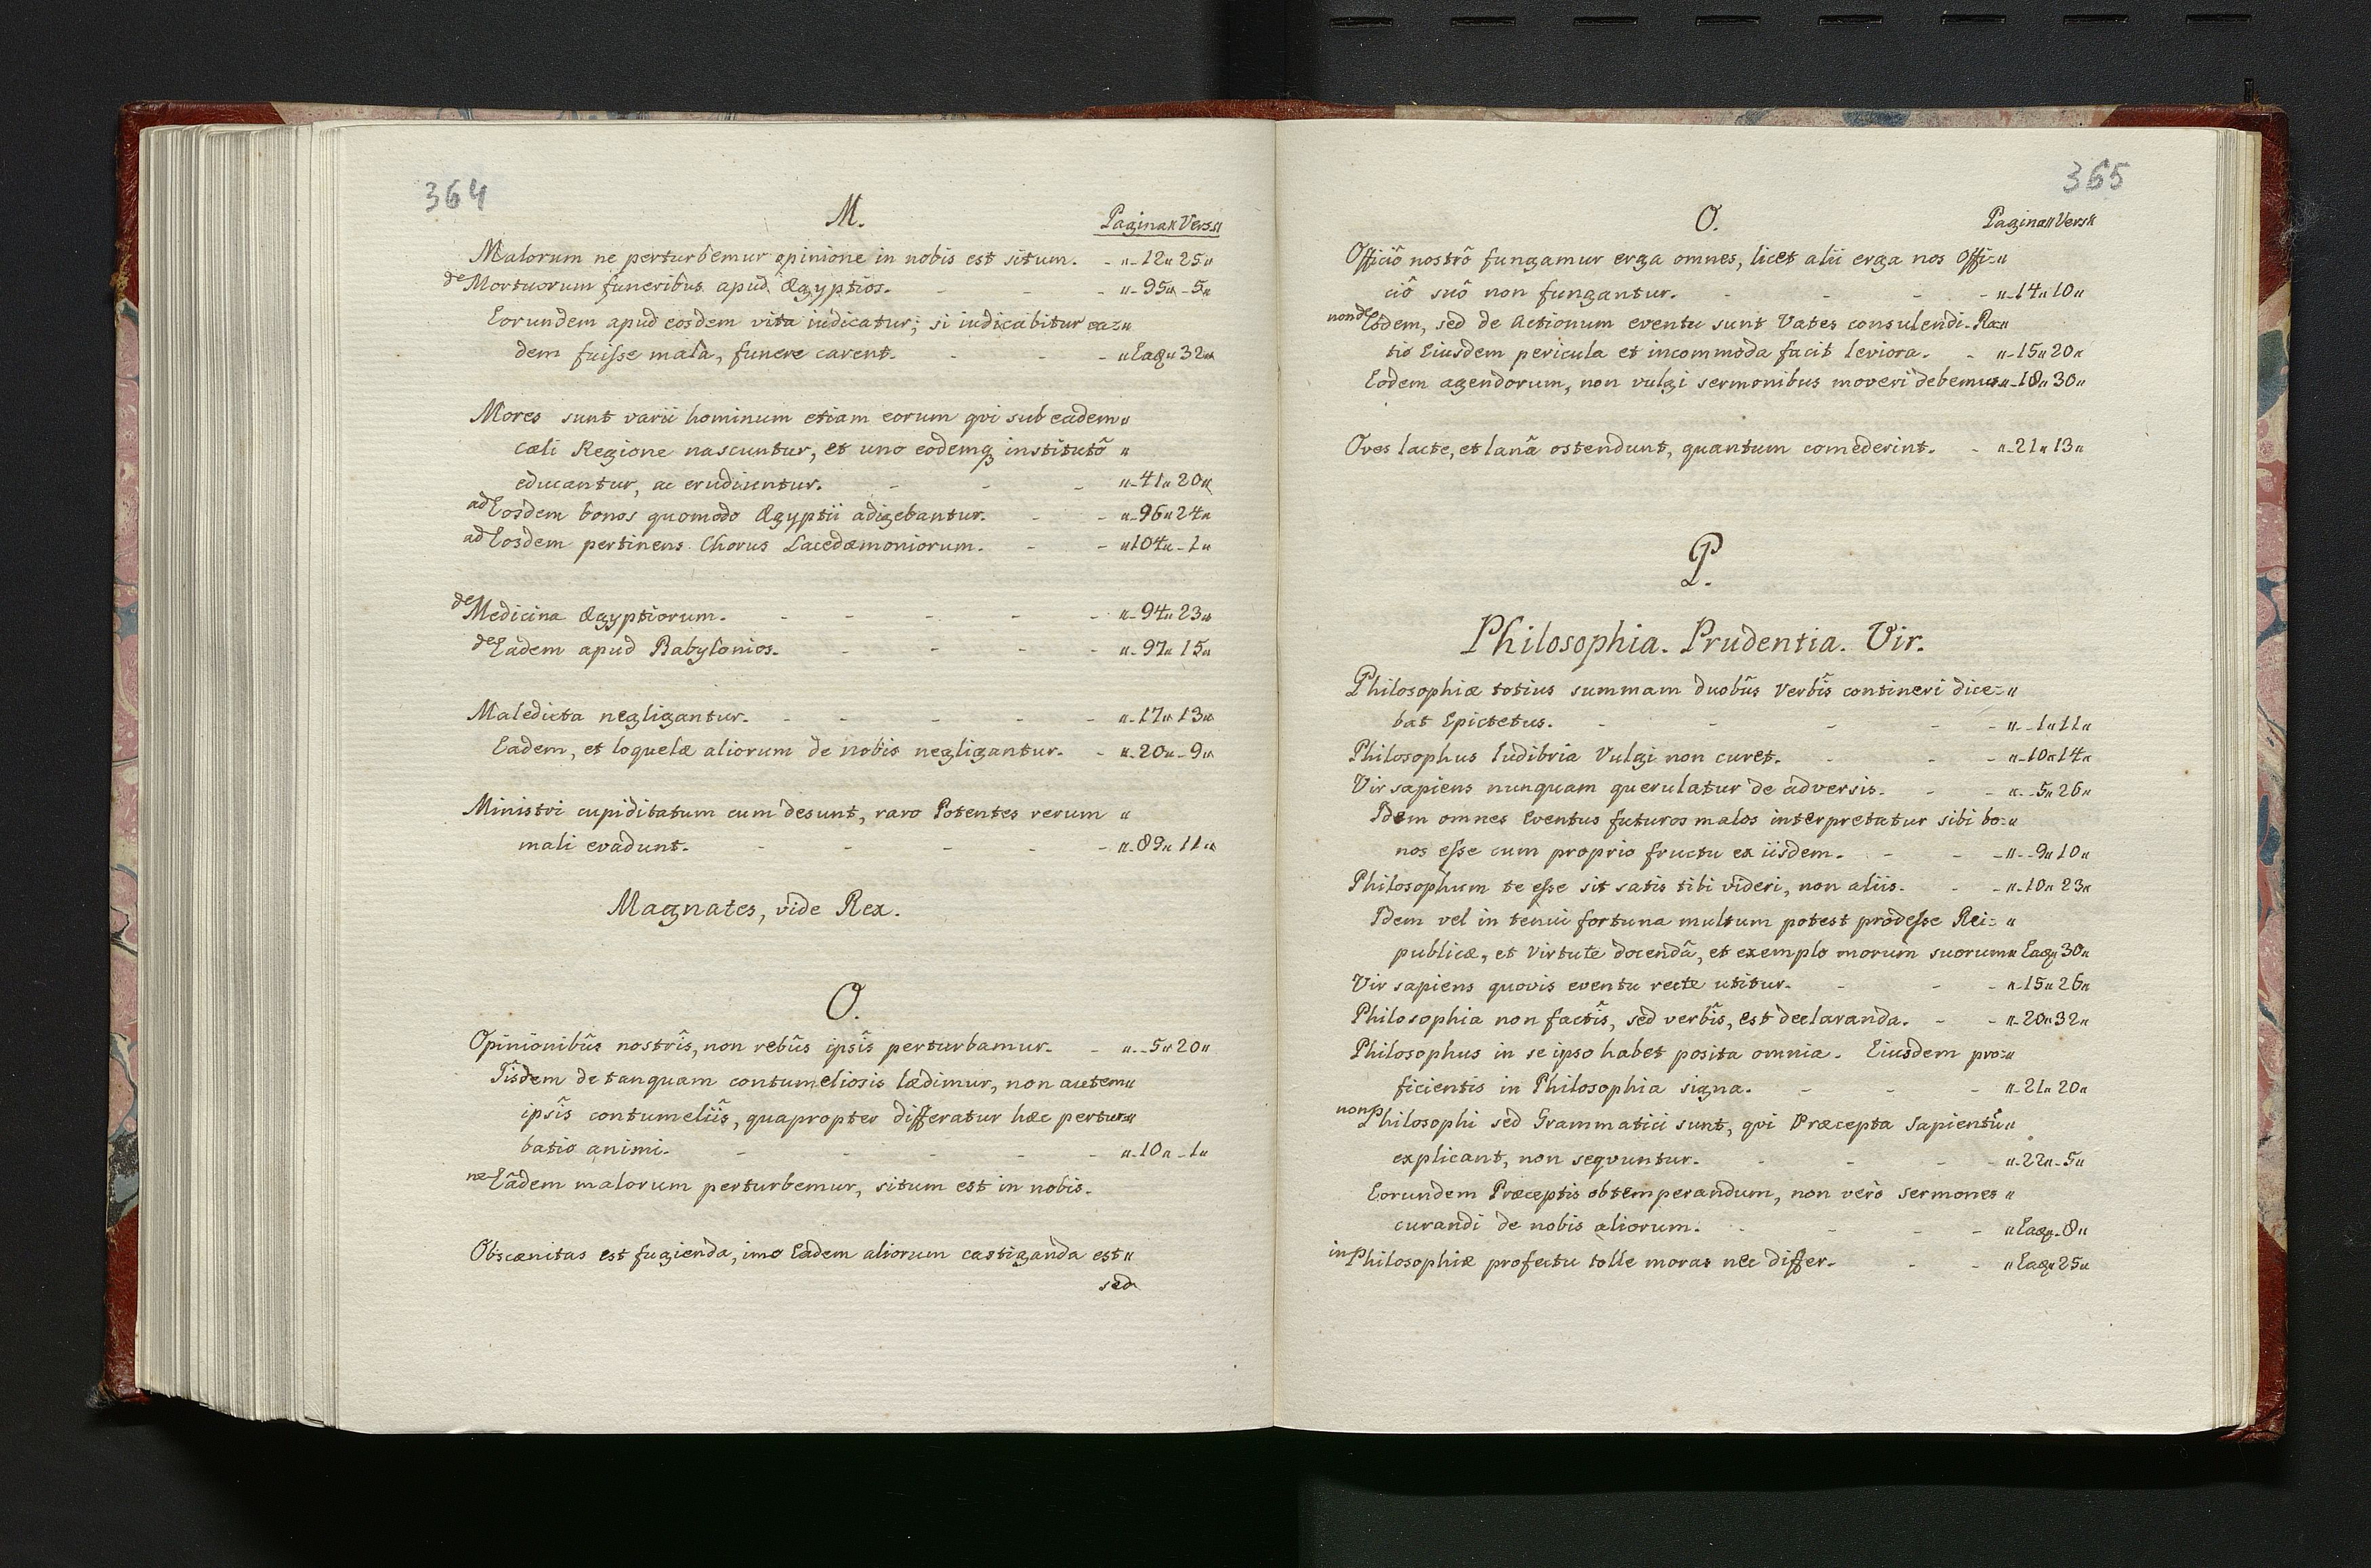 364
M.
Pagina〃Vers〃
Malorum ne perturbemur opinione in nobis est situm. - 〃-12〃25〃
de Mortuorum funeribus apud Ægyptios. - - - 〃-95〃-5〃
Eorundem apud eosdem vita iudicatur; si iudicabitur ea=〃
dem fuisse mala, funere carent. - - - 〃Eaq〃32〃
Mores sunt varii hominum etiam eorum qvi sub eadem〃
cæli Regione nascuntur, et uno eodemq institutô 〃
educantur, ac erudiuntur. - - - 〃-41〃20〃
ad Eosdem bonos quomodo Ægyptii adigebantur. - - 〃-96〃24〃
ad Eosdem pertinens Chorus Lacedæmoniorum. - - 〃104〃-1〃
de Medicina Ægyptiorum. - - - - - 〃-94〃23〃
de Eadem apud Babylonios. - - - - 〃-97〃15〃
Maledicta negligantur. - - - - - 〃-17〃13〃
Eadem, et loquelæ aliorum de nobis negligantur. - 〃-20〃-9〃
Ministri cupiditatum cum desunt, raro Potentes rerum 〃
mali evadunt. - - - - - 〃-89〃11〃
Magnates, vide Rex.
O.
Opinionibûs nostrîs, non rebûs ipsîs perturbamur. - 〃--5〃20〃
Iisdem de tanquam contumeliosis lædimur, non autem〃
ipsîs contumeliîs, quapropter differatur hæc pertur=〃
batio animi. - - - - - 〃-10〃-1〃
ne Eâdem malorum perturbemur, situm est in nobis.
Obscænitas est fugienda, imo Eadem aliorum castiganda est〃
sed
365
O.
Pagina〃Vers〃
Officiô nostrô fungamur erga omnes, licet alii erga nos Offi=〃
ciô suô non fungantur. - - - - 〃-14〃10〃
non de Eodem, sed de Actionum eventu sunt Vates consulendi. Ra=〃
tio Eiusdem pericula et incommoda facit leviora. - 〃-15〃20〃
Eodem agendorum, non vulgi sermonibus moveri debemus〃-18〃30〃
Oves lacte, et lanâ ostendunt, quantum comederint. - 〃-21〃13〃
P.
Philosophia. Prudentia. Vir.
Philosophiæ totius summam duobûs Verbîs contineri dice=〃
bat Epictetus. - - - - - 〃--1〃11〃
Philosophus ludibria Vulgi non curet. - - - 〃-10〃14〃
Vir sapiens nunquam querulatur de adversis. - - 〃--5〃26〃
Idem omnes Eventus futuros malos interpretatur sibi bo=〃
nos esse cum proprio fructu ex iisdem. - - - 〃--9〃10〃
Philosophum te esse sit satis tibi videri, non aliis. - - 〃-10〃23〃
Idem vel in tenui fortuna multum potest prodesse Rei= 〃
publicæ, et Virtute docendâ, et exemplo morum suorum〃Eaq〃30〃
Vir sapiens quovis eventu recte utitur. - - - 〃-15〃26〃
Philosophia non factîs, sed verbîs, est declaranda. - - 〃-20〃32〃
Philosophus in se ipso habet posita omnia. Eiusdem pro=〃
ficientis in Philosophia signa. - - - 〃-21〃20〃
non Philosophi sed Grammatici sunt, qvi Præcepta Sapientû〃
explicant, non seqvuntur. - - - - 〃-22〃-5〃
Eorundem Præceptis obtemperandum, non verò sermones 〃
curandi de nobis aliorum. - - - - 〃Eaq〃-8〃
in Philosophiæ profectu tolle moras nec differ. - - 〃Eaq〃25〃